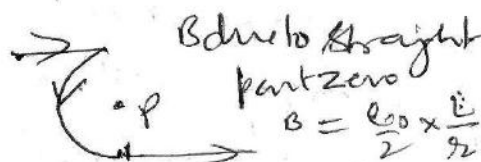 B due to straight
part zero
P
B = μ0/2 × i/r